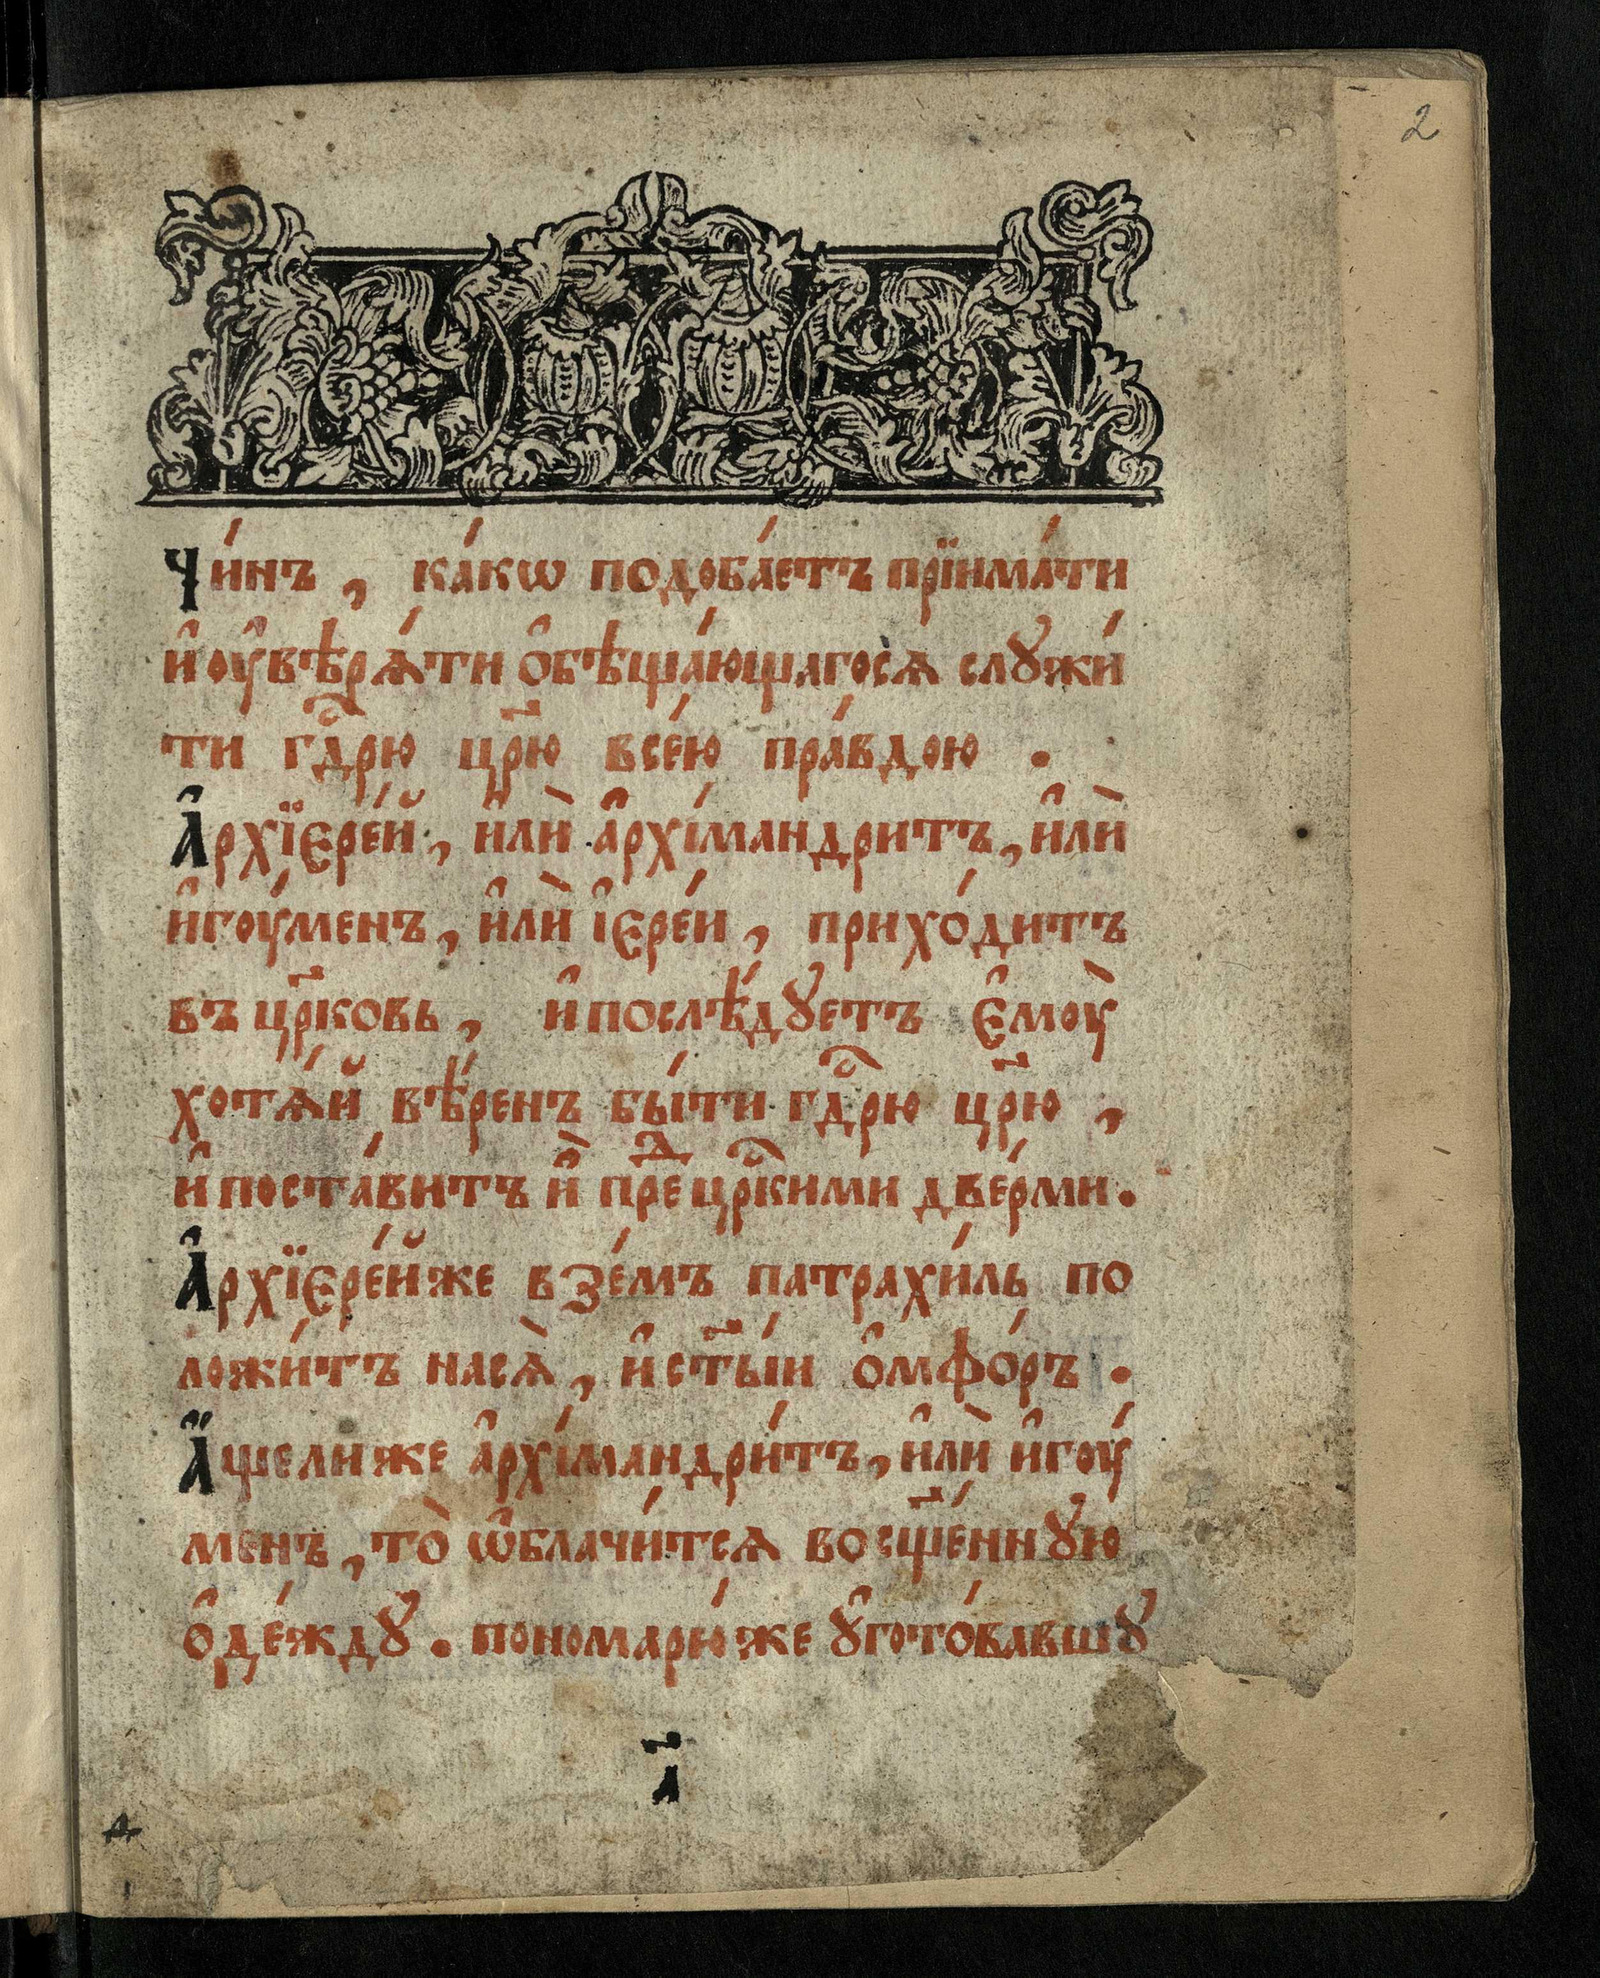 2
Чи́нъ, ка́кѡ подоба́етъ прїима́ти
и҆ ѹ҆вѣрѧ́ти ѻ҆бѣща́ющагосѧ слꙋжи́
ти гдⷭ҇рю цр҃ю̀ все́ю пра́вдою.
А҆рхїере́й, и҆лѝ а҆рхі́мандритъ, и҆лѝ
и҆гѹ́менъ, и҆лѝ і҆ере́и, прихо́дитъ
въ цр҃ковь, и҆ послѣ́дꙋетъ є҆мѹ̀
хотѧ́й вѣ́ренъ бы́ти гдⷭ҇рю цр҃ю̀,
и҆ поста́витъ и҆̀ преⷣ црⷭ҇кими две́рми.
А҆рхїере́йже взе́мъ патрахи́ль по
ложи́тъ насѧ̀, и҆ ст҃ы́и ѻ҆мфо́ръ.
А҆́щелиже а҆рхі́мандри́тъ, и҆лѝ и҆гѹ́
менъ, то̀ ѡ҆блачи́тсѧ во сщ҃е́ннꙋю
ѻ҆де́ждꙋ. пономарю́же ꙋ҆гото́вавшꙋ
а҃
А